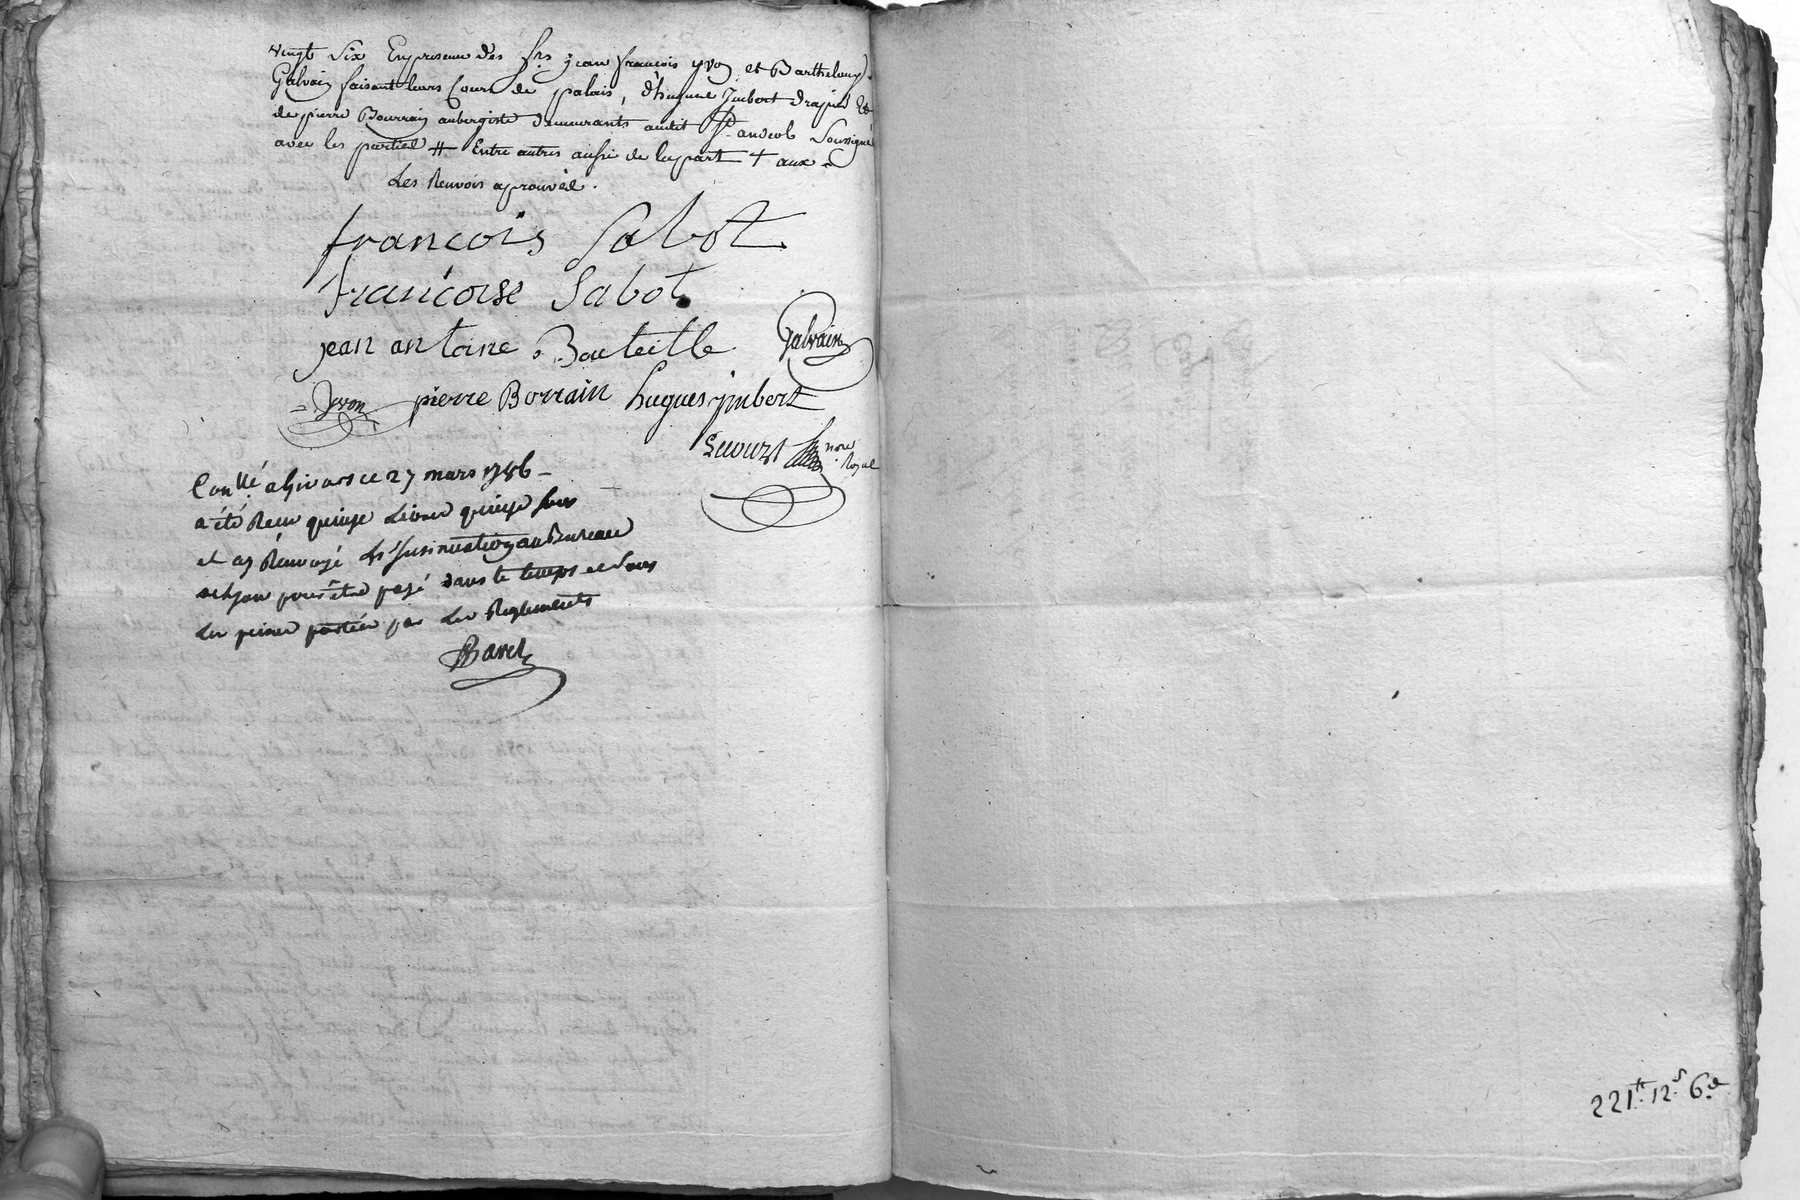 vingt six En presence des srs jean francois yvon et Barthelemy
Galvain faisant leurs Cours de palais, d'hugues Imbert drapier Et
de pierre Bourrain aubergiste demeurants audit St andeol Soussignés
avec les parties # Entre autres aussi de la part + aux =
Les Renvois aprouvés.
francois Sabot
francoise Sabot
jean antoine Bouteille Galvain
= Yvon pierre Borrain hugues ymbert
nore Royal
Conllé a Vivars ce 27 mars 1786
a été Recu quinze Livres quinze sous
et a Renvoyé L'Insinuation au Bureau
pour être payé dans le temps et sous
Les peines portées par Les Reglements
Barel
221tt. 12s. 6d